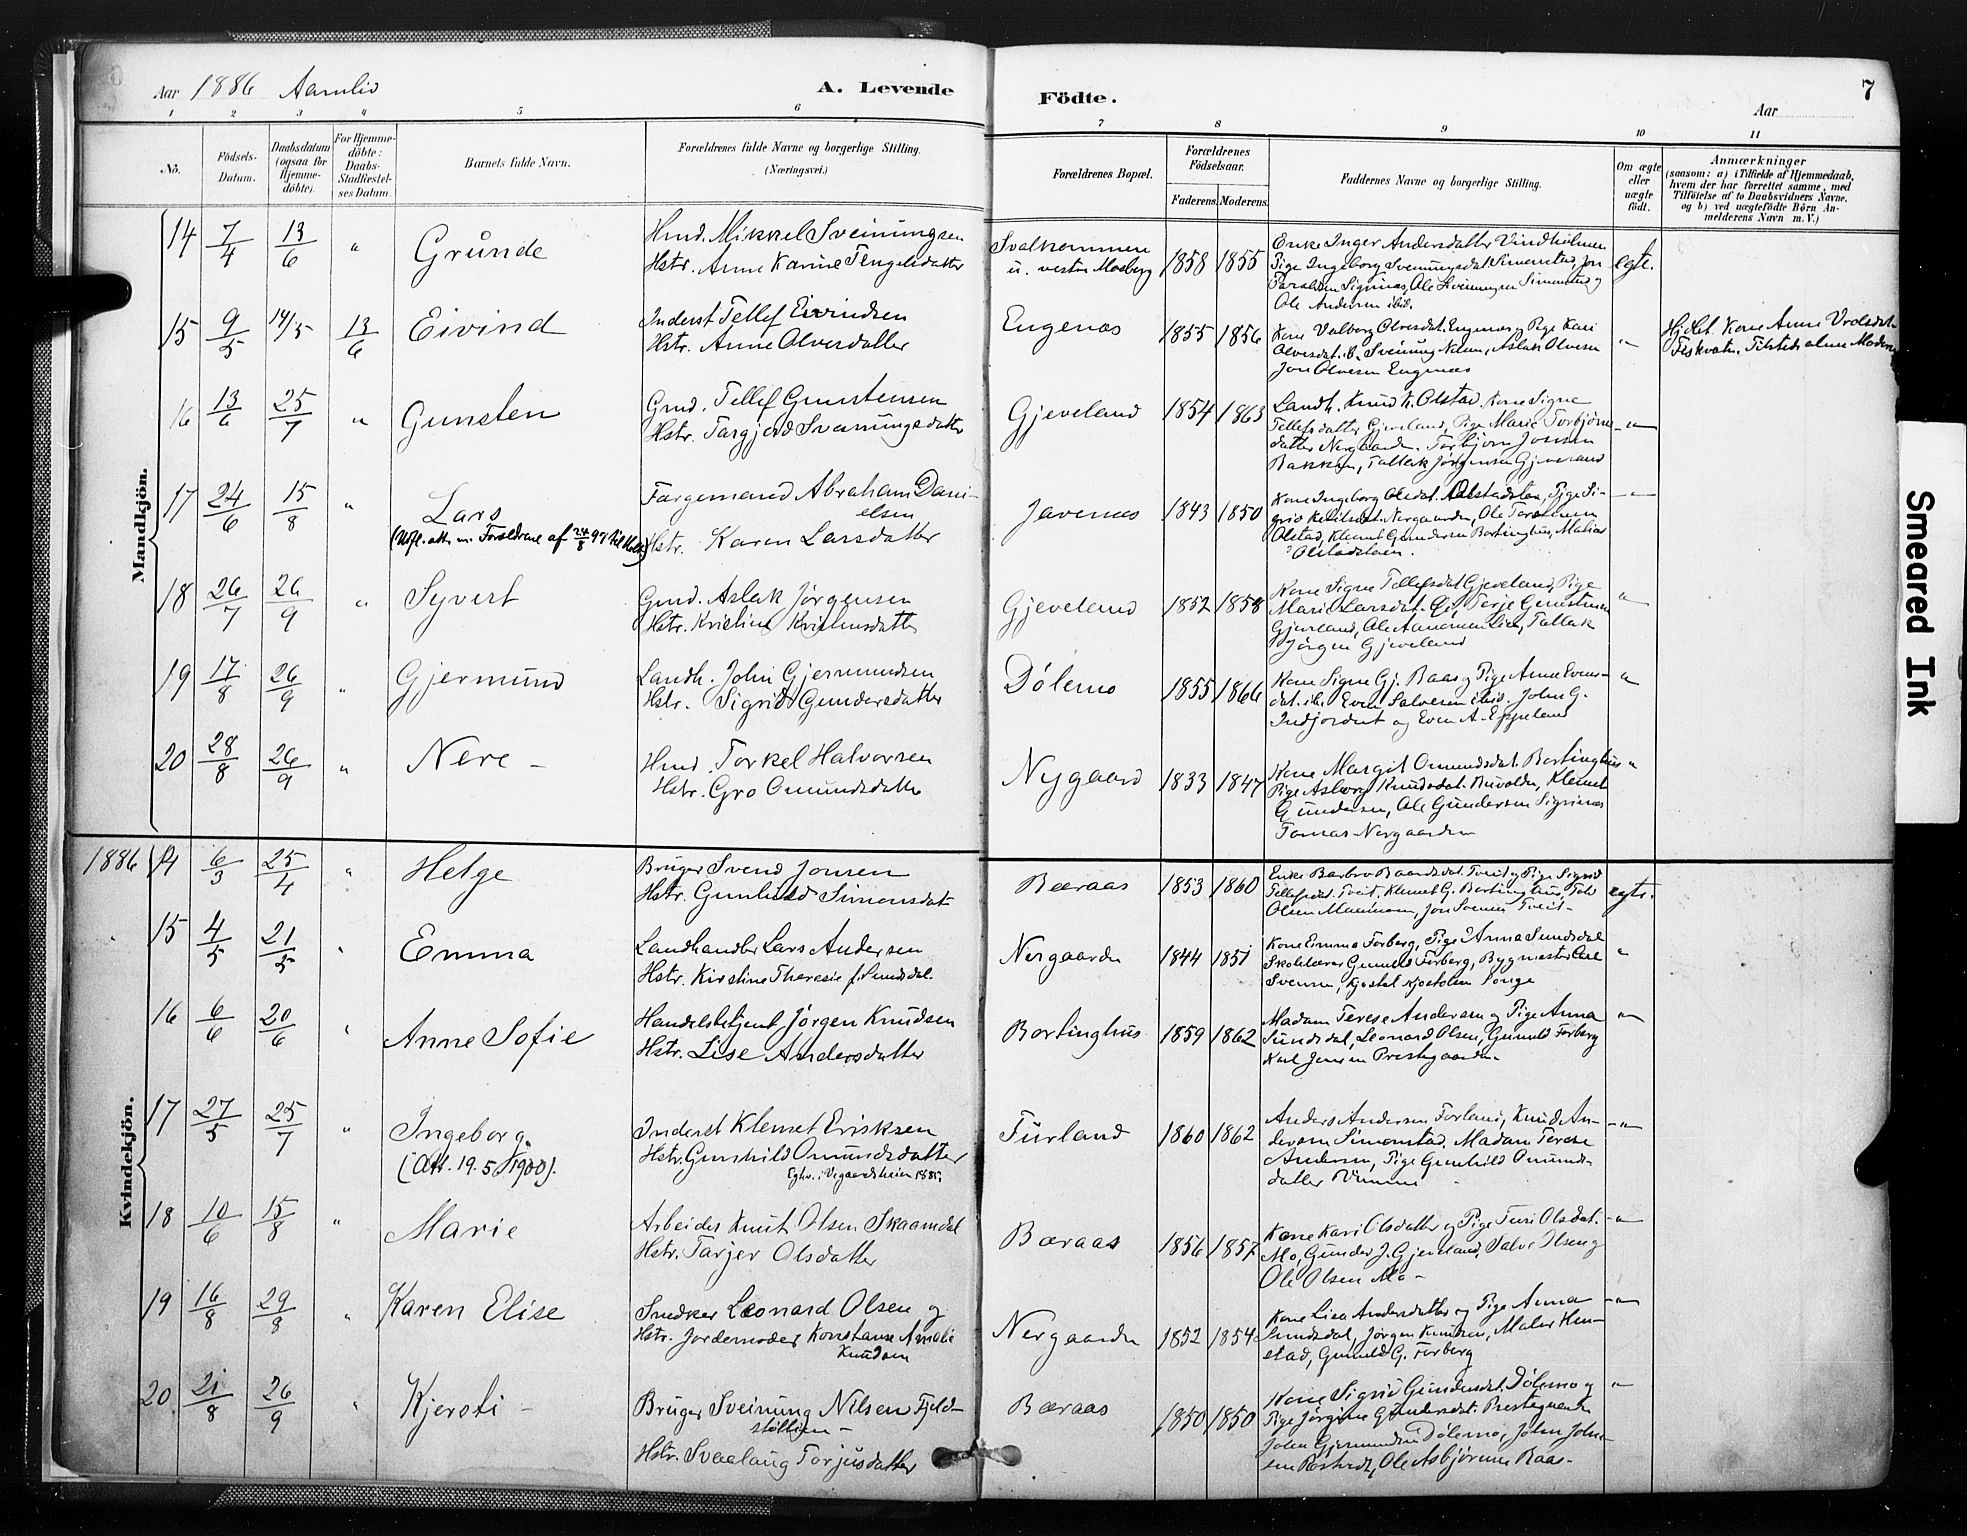 Aar 1886 Aamlid
A. Levende
Födte.
Aar
7
1 2 3 4 5 6 7 8 9 10 11
No.
Födsels-
Datum.
Daabsdatum
(ogsaa for
Hjemme-
döbte).
For Hjemme-
döbte:
Daabs-
Stadfæstel-
ses Datum.
Barnets fulde Navn.
Forældrenes fulde Navne og borgerlige Stilling.
(Næringsvei.)
Forældrenes Bopæl.
Forældrenes
Födselsaar.
Faderens. Moderens.
Faddernes Navne og borgerlige Stilling.
Om ægte
eller
uægte
födt.
Anmærkninger
(saasom: a) i Tilfælde af Hjemmedaab,
hvem der har forrettet samme, med
Tilföielse af to Daabsvidners Navne.
og b) ved uægtefödte Börn An-
melderens Navn m. V.)
Mandkjön.
14 7/4 13/6 " Grunde
Hmd. Mikkel Sveinungsen
Hstr. Anne Karine Tengelsdatter
u. vestre Mosberg 1858 1855
Enke Inger Andersdatter Vindholmen
Pige Ingeborg Sveinungsdat. Simonstad, Jon
Ole Andersen ibid.
egte.
15 9/5 14/5 13/6 Eivind
Inderst Tellef Eivindsen
Hstr. Anne Olvesdatter
Engenæs 1855 1856
Kone Valborg Olvesdat. Engenæs og Pige Kari
Olvesdat. Sveinung Nelsen, Aslak Olvesen
Jon Olvesen Engenæs
"
Hj.døbt. Kone Anne
Tilstede alene Moderen
16 13/6 25/7 " Gunsten
Gmd. Tellef Gunstensen
Hstr. Targjerd Sveinungsdatter
Gjeveland 1854 1863
Landh. Knud K. Olstad. Kone Signe
Tellefsdatter Gjeveland, Pige Marie Torbjörns-
datter Nergaarden. Torbjörn Jonsen
Bakken, Tallak Jörgensen Gjeveland
"
17 24/6 15/8 " Lars
Fargemand Abraham Dani-
elsen
Hstr. Karen Larsdatter
(Utfl. att. m. Forældrene af 24/8 97 til
Javenæs 1843 1850
Kone Ingeborg Olsdat. Olstadsteen, Pige Si-
grid Nergaarden, Ole
Olstad, Klemet Gundersen Bortinghus,
Olstadsteen.
"
18 26/7 26/9 " Syvert
Gmd. Aslak Jörgensen
Hstr. Kristine
Gjeveland 1852 1858
Kone Signe Tellefsdat. Gjeveland, Pige
Marie Larsdat. Terje Gunstensen
Gjeveland, Ole Lien, Tallak
Jörgen Gjeveland
"
19 17/8 26/9 " Gjermund
Landh. John Gjermundsen
Hstr. Sigrid Gundersdatter
Dölemo 1855 1866
Kone Signe Gj. Baas og Pige Anne Evens-
dat. ib. Even Salvesen ibid. John G.
og Even A. Eppeland
"
20 28/8 26/9 " Nere -
Hmd. Torkel Halvorsen
Hstr. Gro Omundsdatter
Nygaard 1833 1847
Kone Margit Omundsdat. Bortinghus
Pige Asborg Knudsdat. Klemet
Gundersen, Ole Gundersen Sigrinæs
Tomas Nergaarden
"
Kvindekjön.
1886 14 6/3 25/4 " Helge
Bruger Svend Jonsen
Hstr. Gunhild Simonsdat.
Bæraas 1853 1860
Enke Barbro Baardsdat. Tveit og Pige Sigrid
Tellefsdat. Tveit, Klemet G. Bortinghus,
Olsen, Jon Svensen Tveit -
egte.
15 4/5 21/5 " Emma
Landhandler Lars Andersen
Hstr. Kirstine Theresie f. Sundsdal.
Nergaarden 1844 1851
Kone Emma Forberg, Pige Anna Sundsdal
Skolelærer Forberg, Bygmester Carl
Svensen, Kjostol Kjostolsen Songe
"
16 6/6 20/6 " Anne Sofie
Handelsbetjent Jörgen Knudsen
Hstr. Lise Andersdatter
Bortinghus 1859 1862
Madam Terese Andersen og Pige Anna
Sundsdal, Leonard Olsen, Forberg
Karl Jensen Prestegaarden
"
17 27/5 25/7 " Ingeborg
(Att. 19.5 1900).
Inderst Klemet Eriksen
Hstr. Gunhild Omundsdatter
Eghv. i Vegaardsheien 1885
Furland 1860 1862
Anders Andersen Forland, Knud An-
dersen Simonstad. Madam Terese
Andersen, Pige Gunhild Omunds-
datter
"
18 10/6 15/8 " Marie
Arbeider Knut Olsen Skaamdal
Hstr. Tarjer Olsdatter
Bæraas 1856 1857
Kone Kari Olsdatter og Pige Turi Olsdat.
Mo, Gunder J. Gjeveland, Salve Olsen og
Ole Olsen Mo -
"
19 16/8 29/8 " Karen Elise
Snedker Leonard Olsen og
Hstr. Jordemoder Konstanse Amalie
Knudsen
Nergaarden 1852 1854
Kone Lisa Andersdatter og Pige Anna
Sundsdal, Jörgen Knudsen, Maler Hen-
stad, G. Forberg
"
20 21/8 26/9 " Kjersti -
Bruger Sveinung Nilsen Fjeld-
stöllien -
Hstr. Svaalaug Torjusdatter
Bæraas 1850 1850
Kone Sigrid Gundersdat. Dölemo og
Pige Jörgine Gundersdat.
John Gjermundsen Dölemo, John John-
sen, Ole Asbjörnsen Baas -
"
Smeared Ink